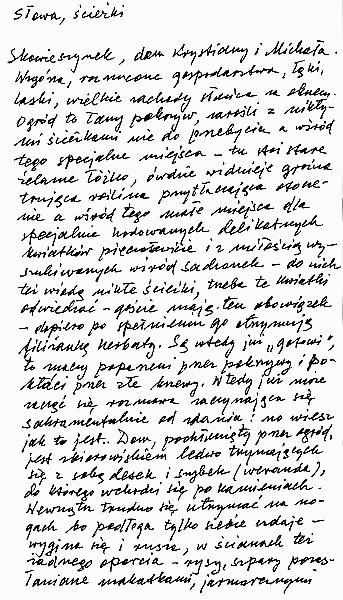 Słowa, ścieżki
Skowieszynek, dom Krystiany i Michała.
Wzgórza, rozrzucone gospodarstwa, łąki,
laski, wielkie zachody słońca na oknem.
Ogród to łany pokrzyw, zarośli z nikły-
mi ścieżkami nie do przebycia a wśród
tego specjalne miejsca – tu stoi stare
żelazne łóżko, ówdzie widnieje groźna
trująca roślina przytłaczająca otocze-
nie a wśród tego małe miejsca dla
specjalnie hodowanych delikatnych
kwiatków pieczołowicie i z miłością wy-
szukiwanych wśród sadzonek – do nich
też wiodą nikłe ścieżki, trzeba te kwiatki
odwiedzać – goście mają ten obowiązek
– dopiero po spełnieniu go otrzymują
filiżankę herbaty. Są wtedy już „gotowi”,
to znaczy poparzeni przez pokrzywy i po-
kłuci przez złe krzewy. Wtedy już może
zacząć się rozmowa zaczynająca się
sakramentalnie od zdania: no wiesz
jak to jest. Dom, pochłonięty przez ogród,
jest zbiorowiskiem ledwo trzymających
się z sobą desek i szybek (weranda),
do którego wchodzi się po kamieniach.
Wewnątrz trudno się utrzymać na no-
gach bo podłoga tylko siebie udaje –
wygina się i rusza, w ścianach też
żadnego oparcia – rysy, szpary pozas-
łaniane makatkami, jarmarcznymi